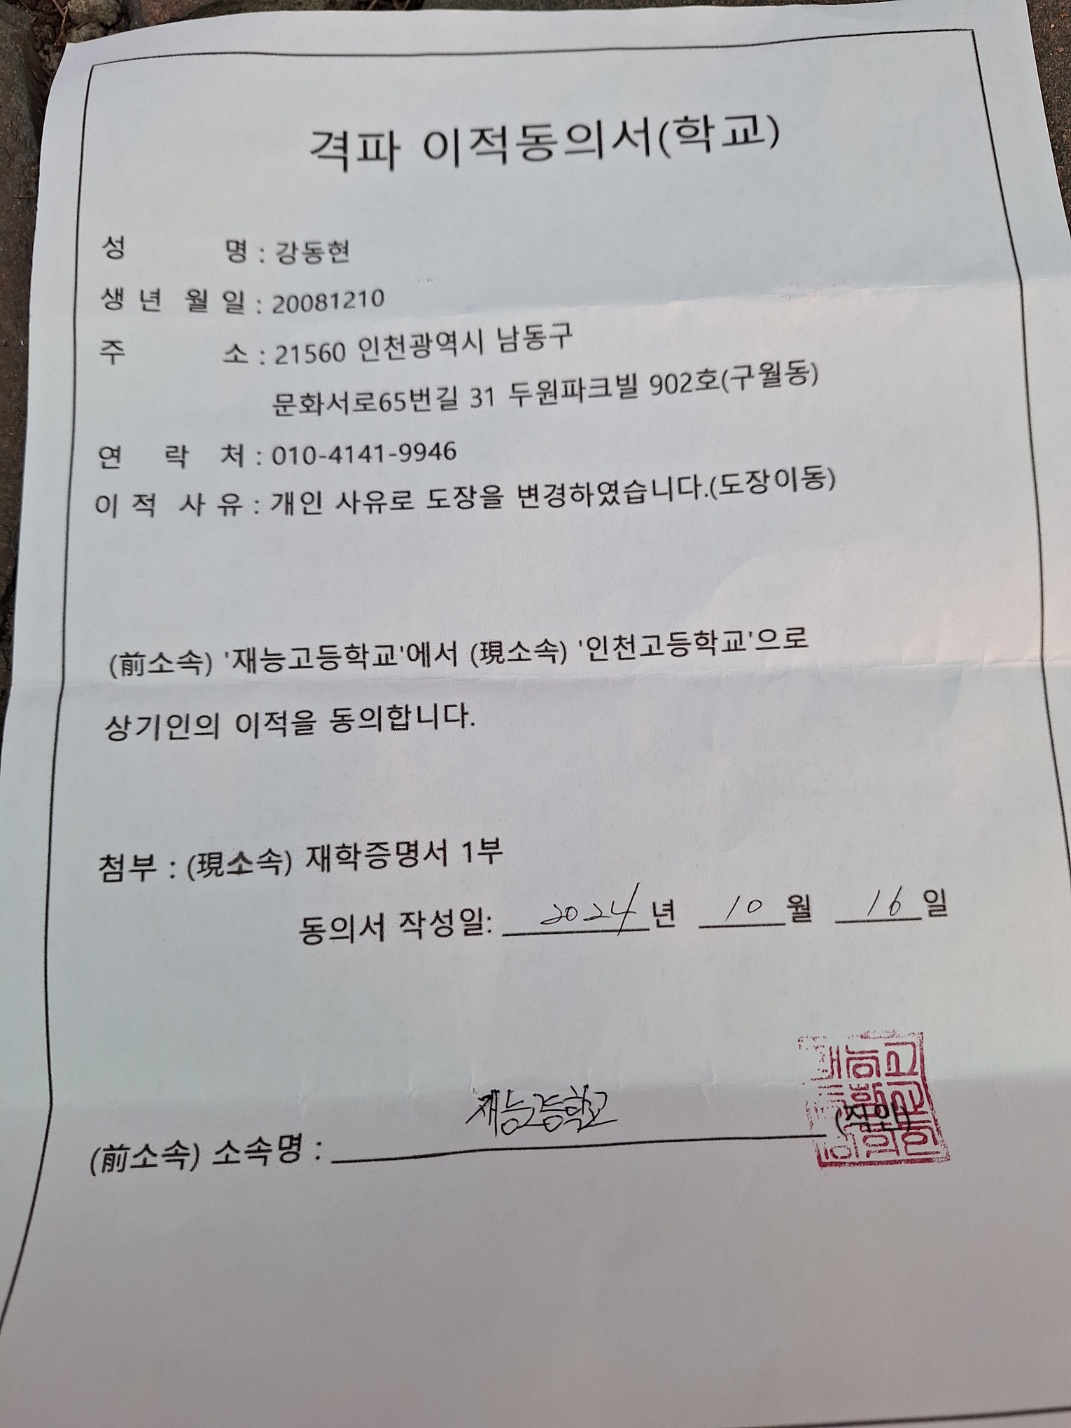 격파 이적동의서(학교)
성 명 : 강동현
생 년 월 일 : 20081210
주 소 : 21560 인천광역시 남동구
문화서로65번길 31 두원파크빌 902호(구월동)
연 락 처 : 010-4141-9946
이 적 사 유 : 개인 사유로 도장을 변경하였습니다.(도장이동)
(前소속) '재능고등학교'에서 (現소속) '인천고등학교'으로
상기인의 이적을 동의합니다.
첨부 : (現소속) 재학증명서 1부
동의서 작성일: 2024년 10월 16일
(前소속) 소속명 : 재능고등학교 (직인)